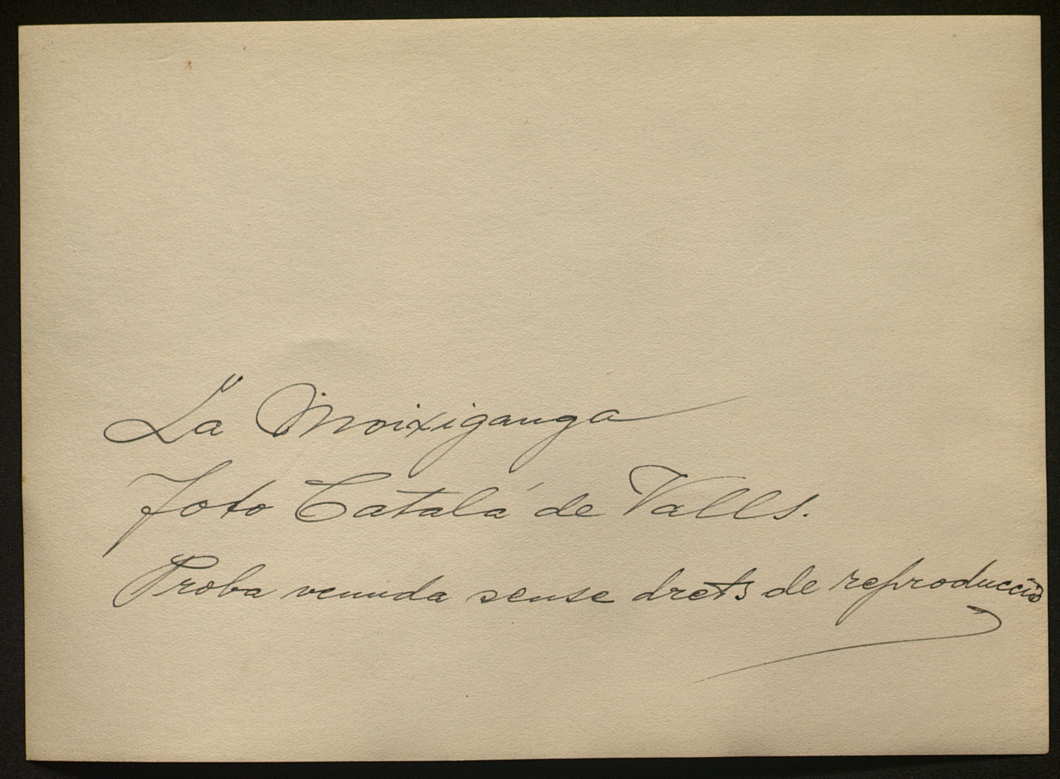 La Moixiganga
Foto Catalá de Valls.
Proba venuda sense drets de reproducció